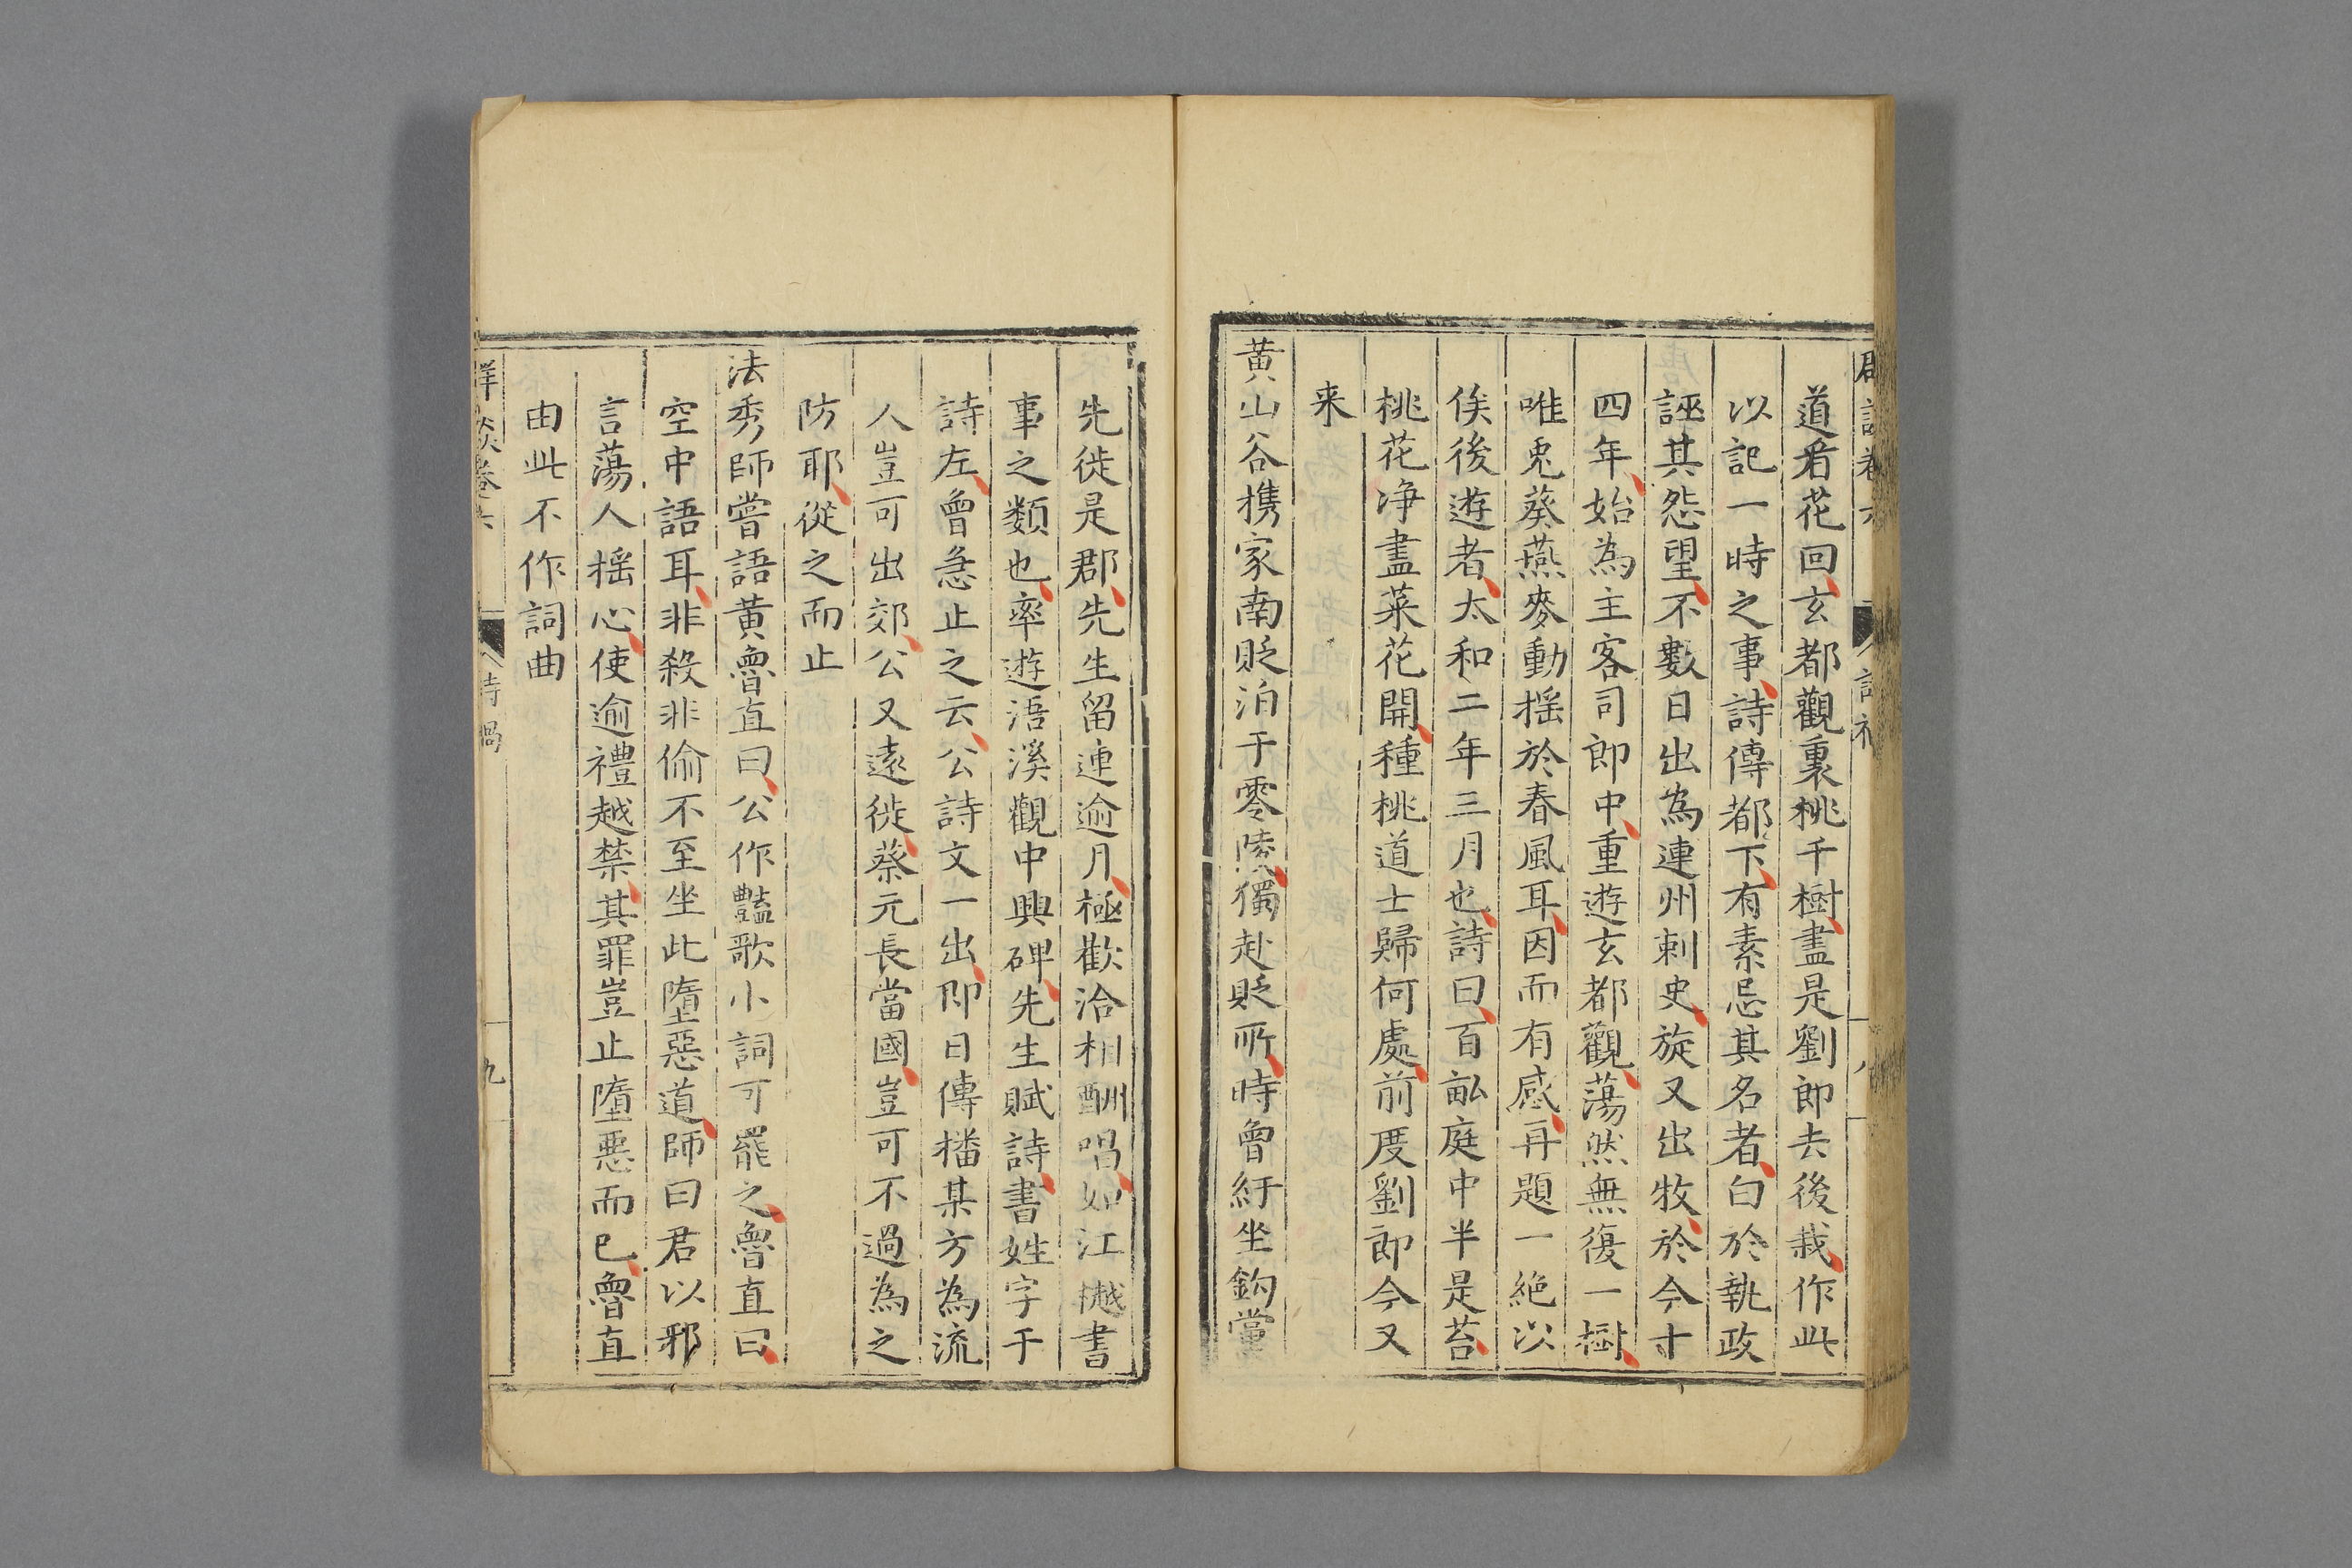 道看花回玄都觀裏桃千樹盡是劉郎去後栽作此
以記一時之事詩傳都下有素忌其名者白於執政
誣其怨望不數日出為連州刺史旋又出牧於今十
四年始為主客司郎中重遊玄都觀蕩然無復一樹
唯兎葵燕麥動摇於春風耳因而有感再題一絶以
俟後遊者太和二年三月也詩曰百畝庭中半是苔
桃花净盡菜花開種桃道士歸何處前度劉郎今又
来
黄山谷携家南貶泊于零陵獨赴貶所時曾紆坐鈎黨
先徙是郡先生留連逾月極歡洽相酬唱如江樾書
事之類也率遊浯溪觀中興碑先生賦詩書姓字于
詩左曾急止之云公詩文一出即日傳播某方為流
人豈可出郊公又遠徙蔡元長當國豈可不過為之
防耶從之而止
法秀師嘗語黄魯直曰公作豔歌小詞可罷之魯直曰
空中語耳非殺非偷不至坐此墮惡道師曰君以邪
言蕩人揺心使逾禮越禁其罪豈止墮惡而已魯直
由此不作詞曲
詳談卷六 詩禍 九